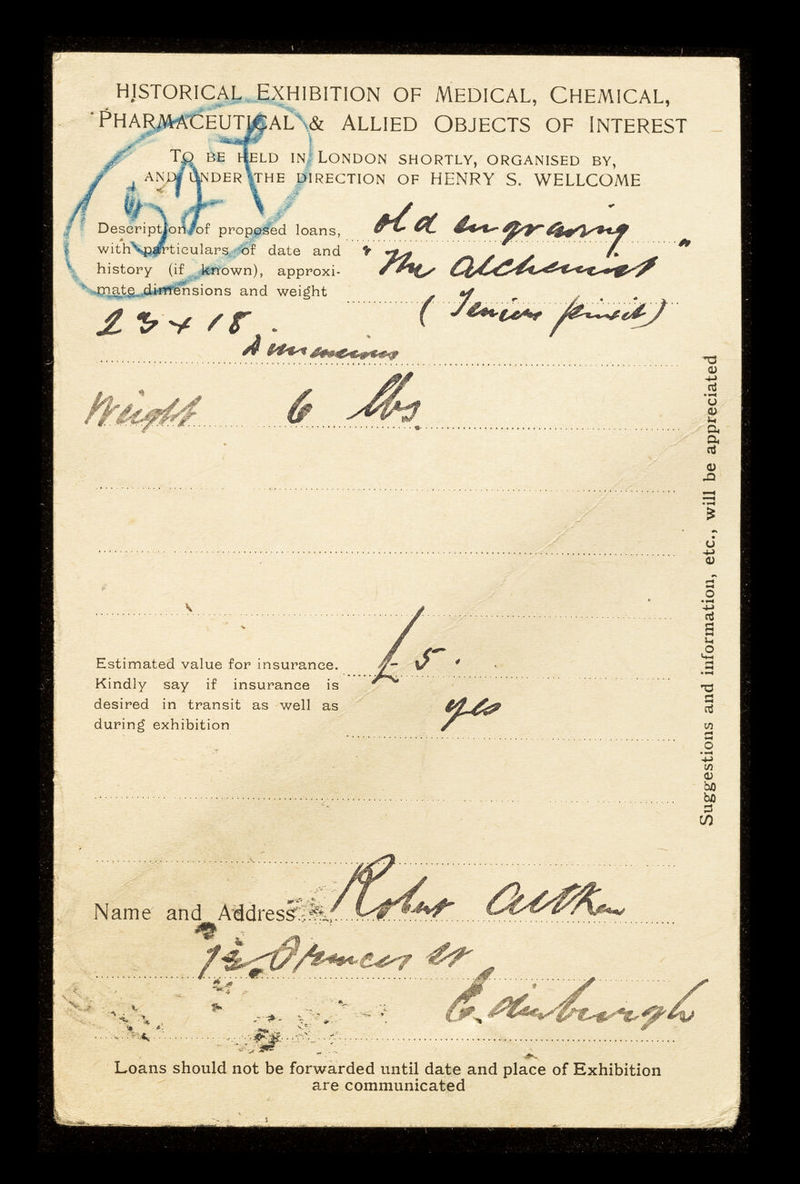 HISTORICAL EXHIBITION OF MEDICAL, CHEMICAL,
PHARMACEUTICAL & ALLIED OBJECTS OF INTEREST
TO BE HELD IN LONDON SHORTLY, ORGANISED BY,
AND UNDER THE DIRECTION OF HENRY S. WELLCOME
Description of proposed loans,
with particulars of date and
history (if known), approxi-
mate dimensions and weight
old engraving
"The Alchemist"
(Teniers pinxit)
23 x 18.
Dimensions
Weight 6 lbs.
Estimated value for insurance.
Kindly say if insurance is
desired in transit as well as
during exhibition
£5.
yes
Name and Address Robert Aitken
Princes St
Edinburgh
Loans should not be forwarded until date and place of Exhibition
are communicated
Suggestions and information, etc., will be appreciated